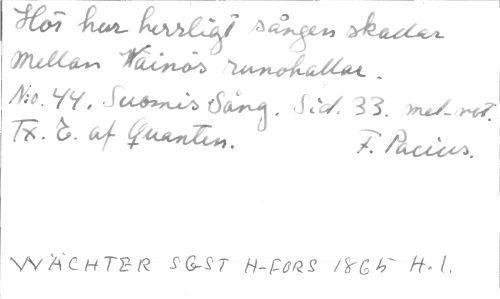 Hör hur herrligt sången skallar
mellan Wäinös runohallar.
N:o. 44. Suomis Sång. Sid. 33. med-not.
Tx. E. af Quanten. F. Pacius.
WÄCHTER SGST H-FORS 1865 H.1.